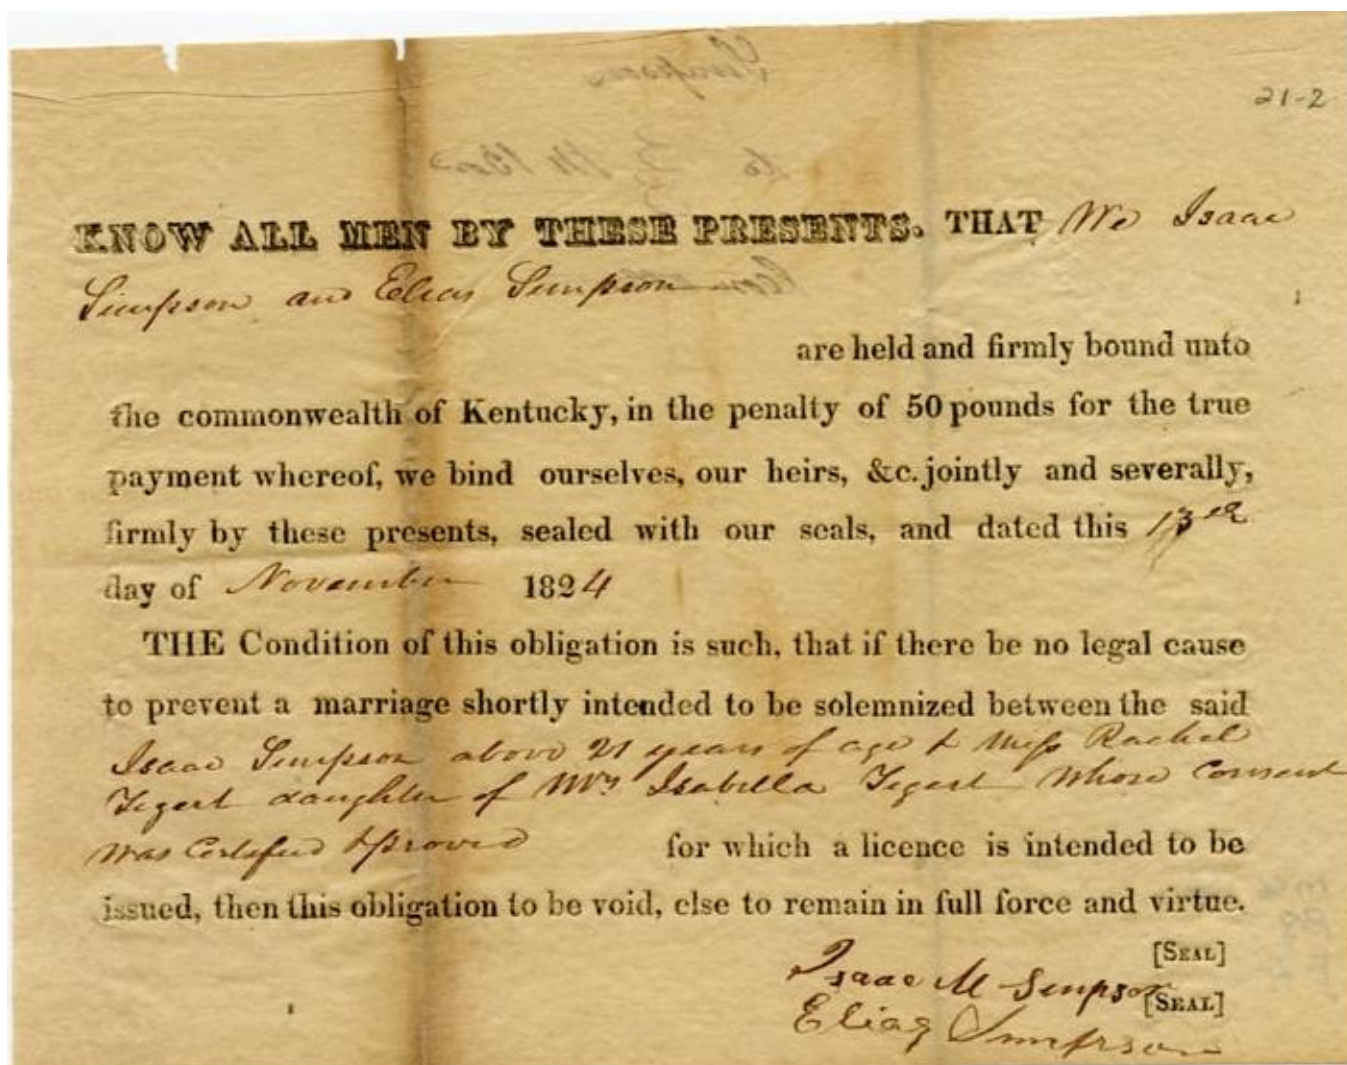 21-2
KNOW ALL MEN BY THESE PRESENTS. THAT We Isaac
Simpson and Elias Simpson
are held and firmly bound unto
the commonwealth of Kentucky, in the penalty of 50 pounds for the true
payment whereof, we bind ourselves, our heirs, &c. jointly and severally,
firmly by these presents, sealed with our seals, and dated this
day of November 1824
THE Condition of this obligation is such, that if there be no legal cause
to prevent a marriage shortly intended to be solemnized between the said
Isaac Simpson above 21 years of age & Miss Rachel
Tegert daughter of Mrs Isabella Tegert whose consent
was Certified & proved for which a licence is intended to be
issued, then this obligation to be void, else to remain in full force and virtue.
[SEAL]
Isaac M Simpson
[SEAL]
Elias Simpson